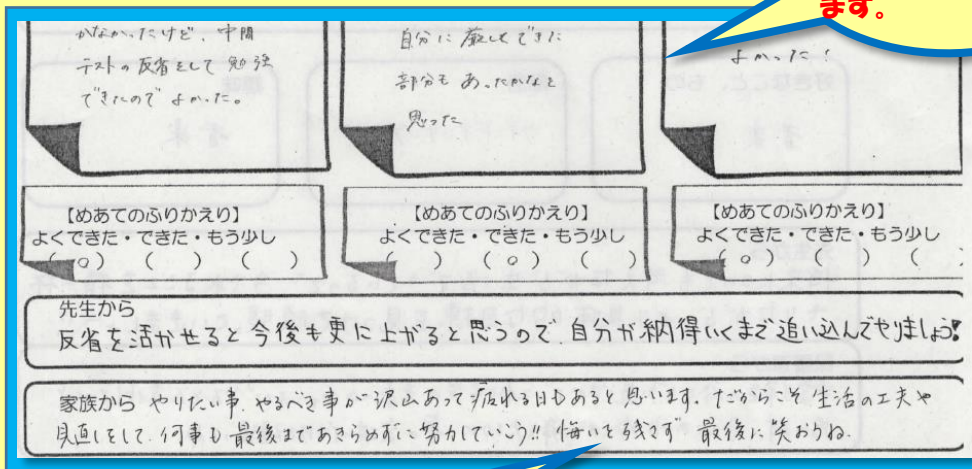 ます。
がなかったけど、中間
テストの反省をして勉強
できたのでよかった。
自分に厳しくできた
部分もあったかなと
思った
よかった!
【めあてのふりかえり】
よくできた・できた・もう少し
( ○ ) ( ) ( )
【めあてのふりかえり】
よくできた・できた・もう少し
( ) ( ○ ) ( )
【めあてのふりかえり】
よくできた・できた・もう少し
( ○ ) ( ) (
先生から
反省を活かせると今後も更に上がると思うので、自分が納得いくまで追い込んでやりましょう!
家族から やりたい事、やるべき事が沢山あって疲れる日もあると思います。だからこそ生活の工夫や
見直しをして、何事も最後まであきらめずに努力していこう!! 悔いを残さず 最後に笑おうね。